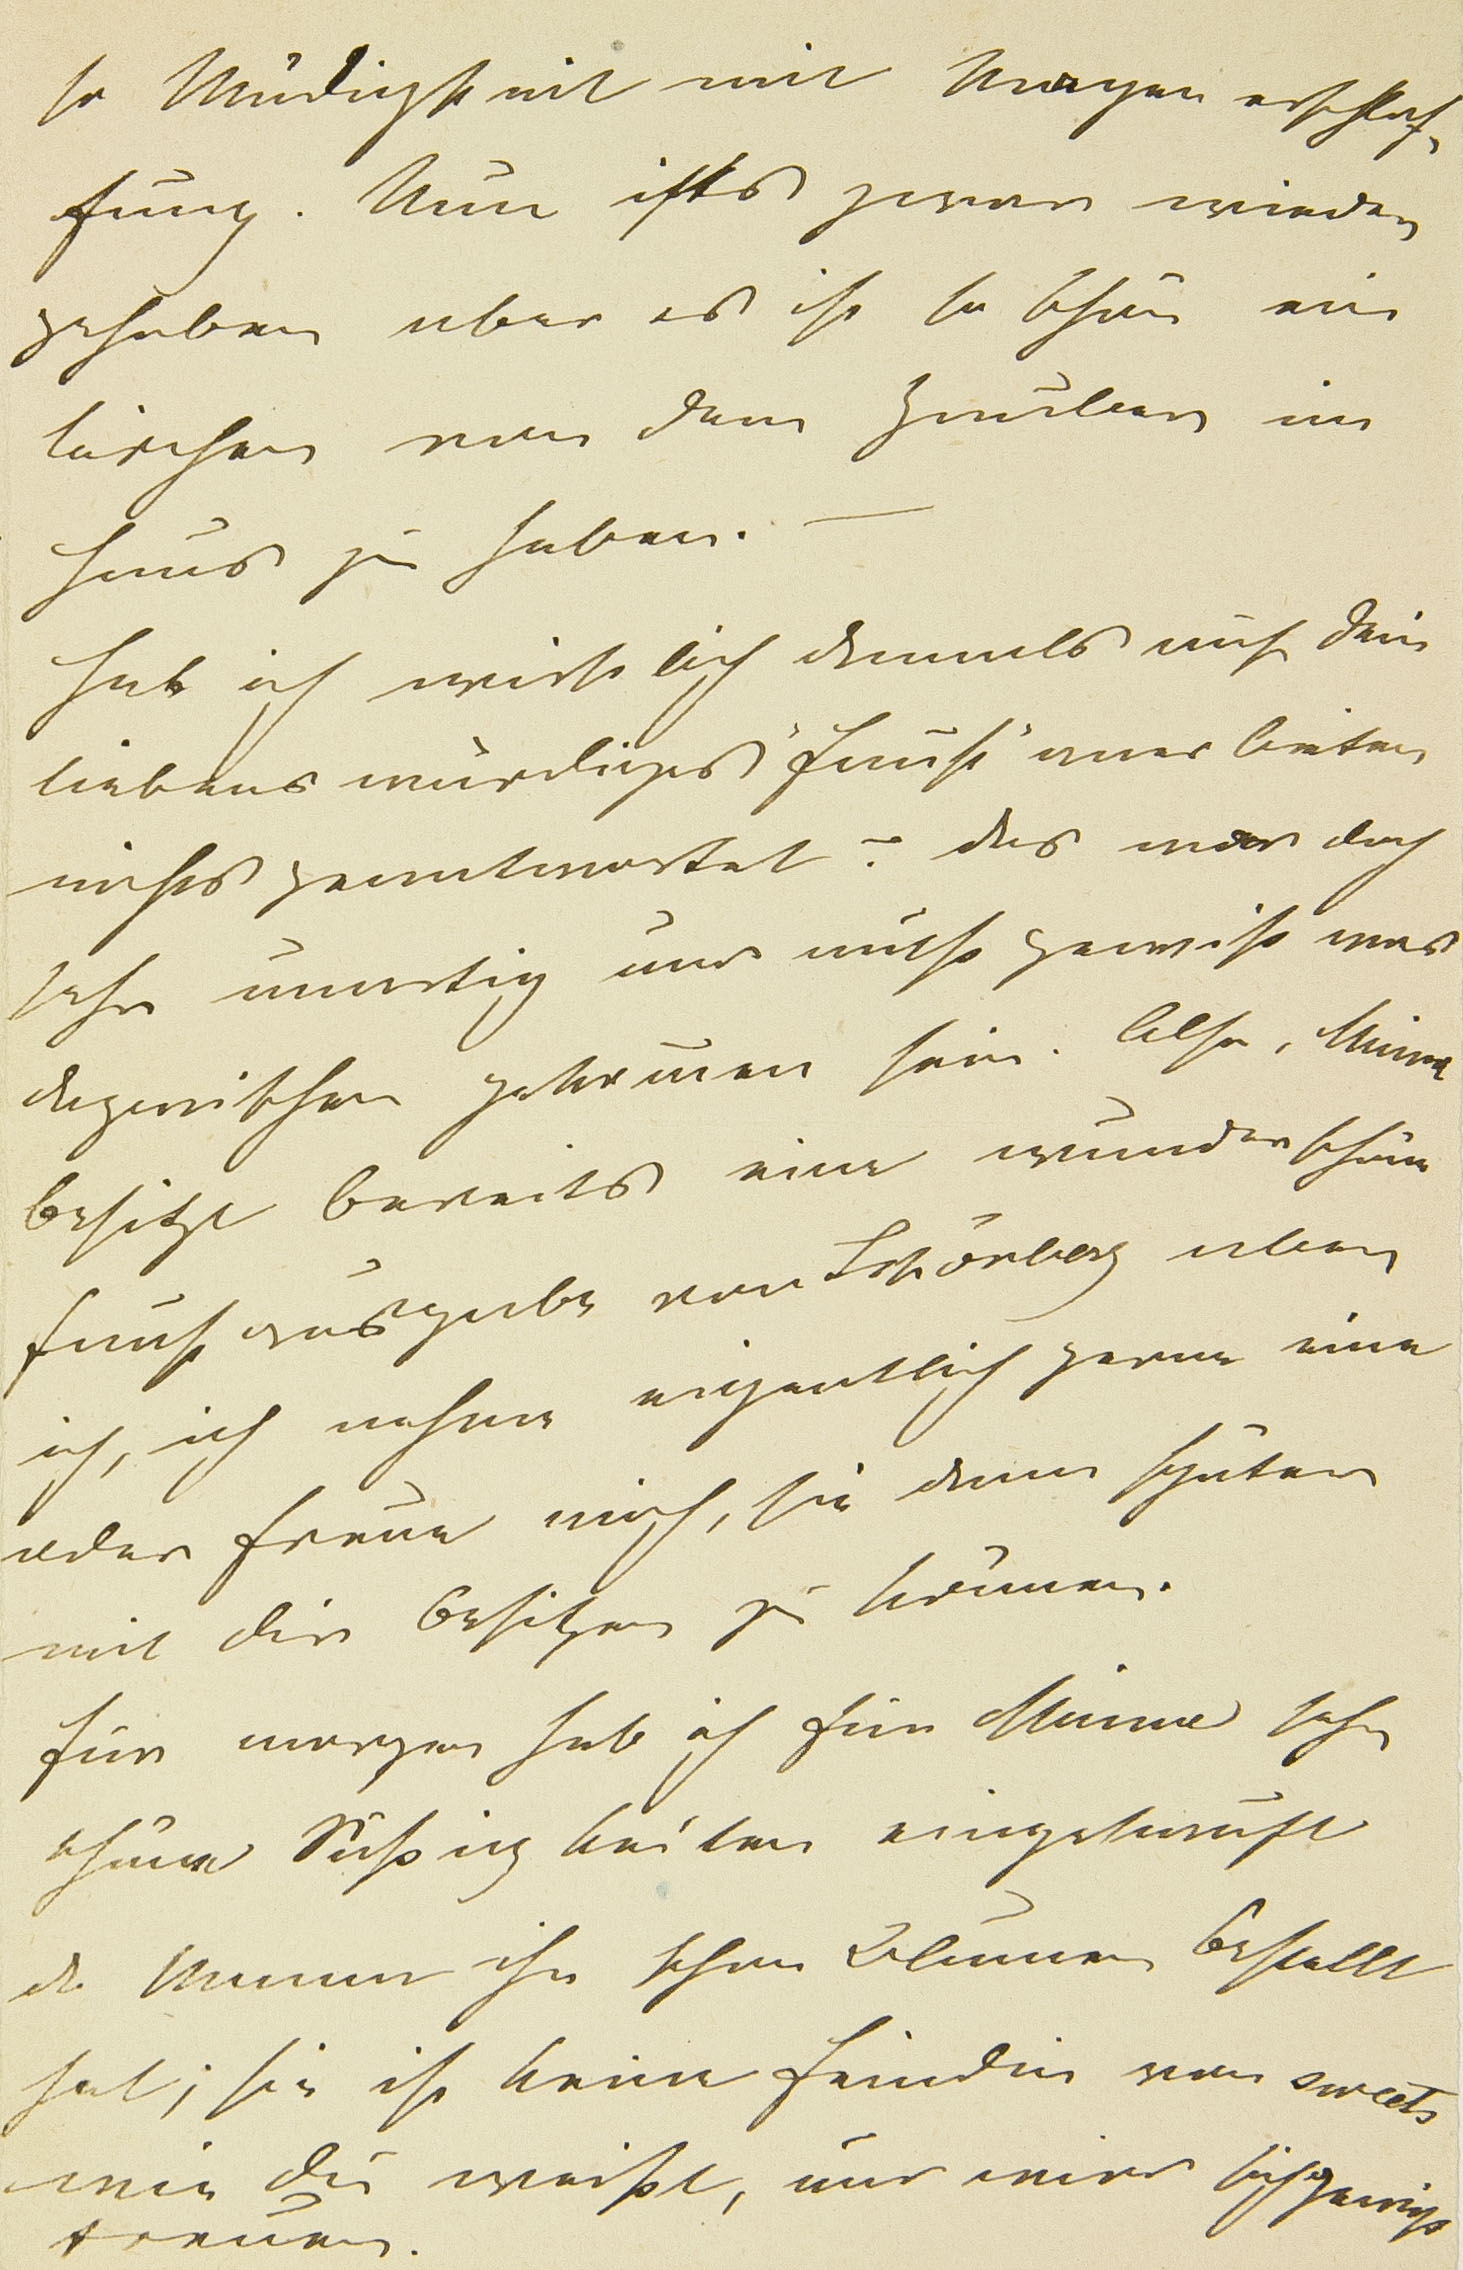 so Müdigkeit mit Magen erschlaf-
fung. Nun ists zwar wieder
gehoben aber es ist so schön ein
bischen von dem Zauber im
Haus zu haben. —
Hab ich wirklich damals auf dein
liebenswürdiges "Faust" anerbieten
nichts geantwortet? das war doch
sehr unartig und muß gewiß was
dazwischen gekommen sein. Also, Minna
besitzt bereits eine wunderschöne
Faust ausgabe von aber
ich, ich nehme eigentlich gerne eine
oder freue mich, sie dann später
mit dir besitzen zu können.
Für morgen hab ich für Minna sehr
schöne Süßigkeiten eingekauft
da Mama ihr schon Blumen bestellt
hat; sie ist keine Feindin von sweets
wie du weißt, und wird sich gewiß
freuen.